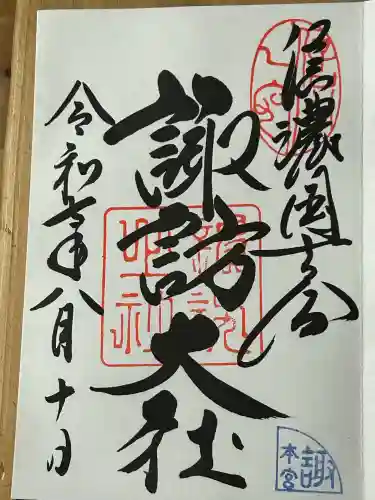 信濃國一之宮
諏訪大社
令和 年八月十日
諏
本宮